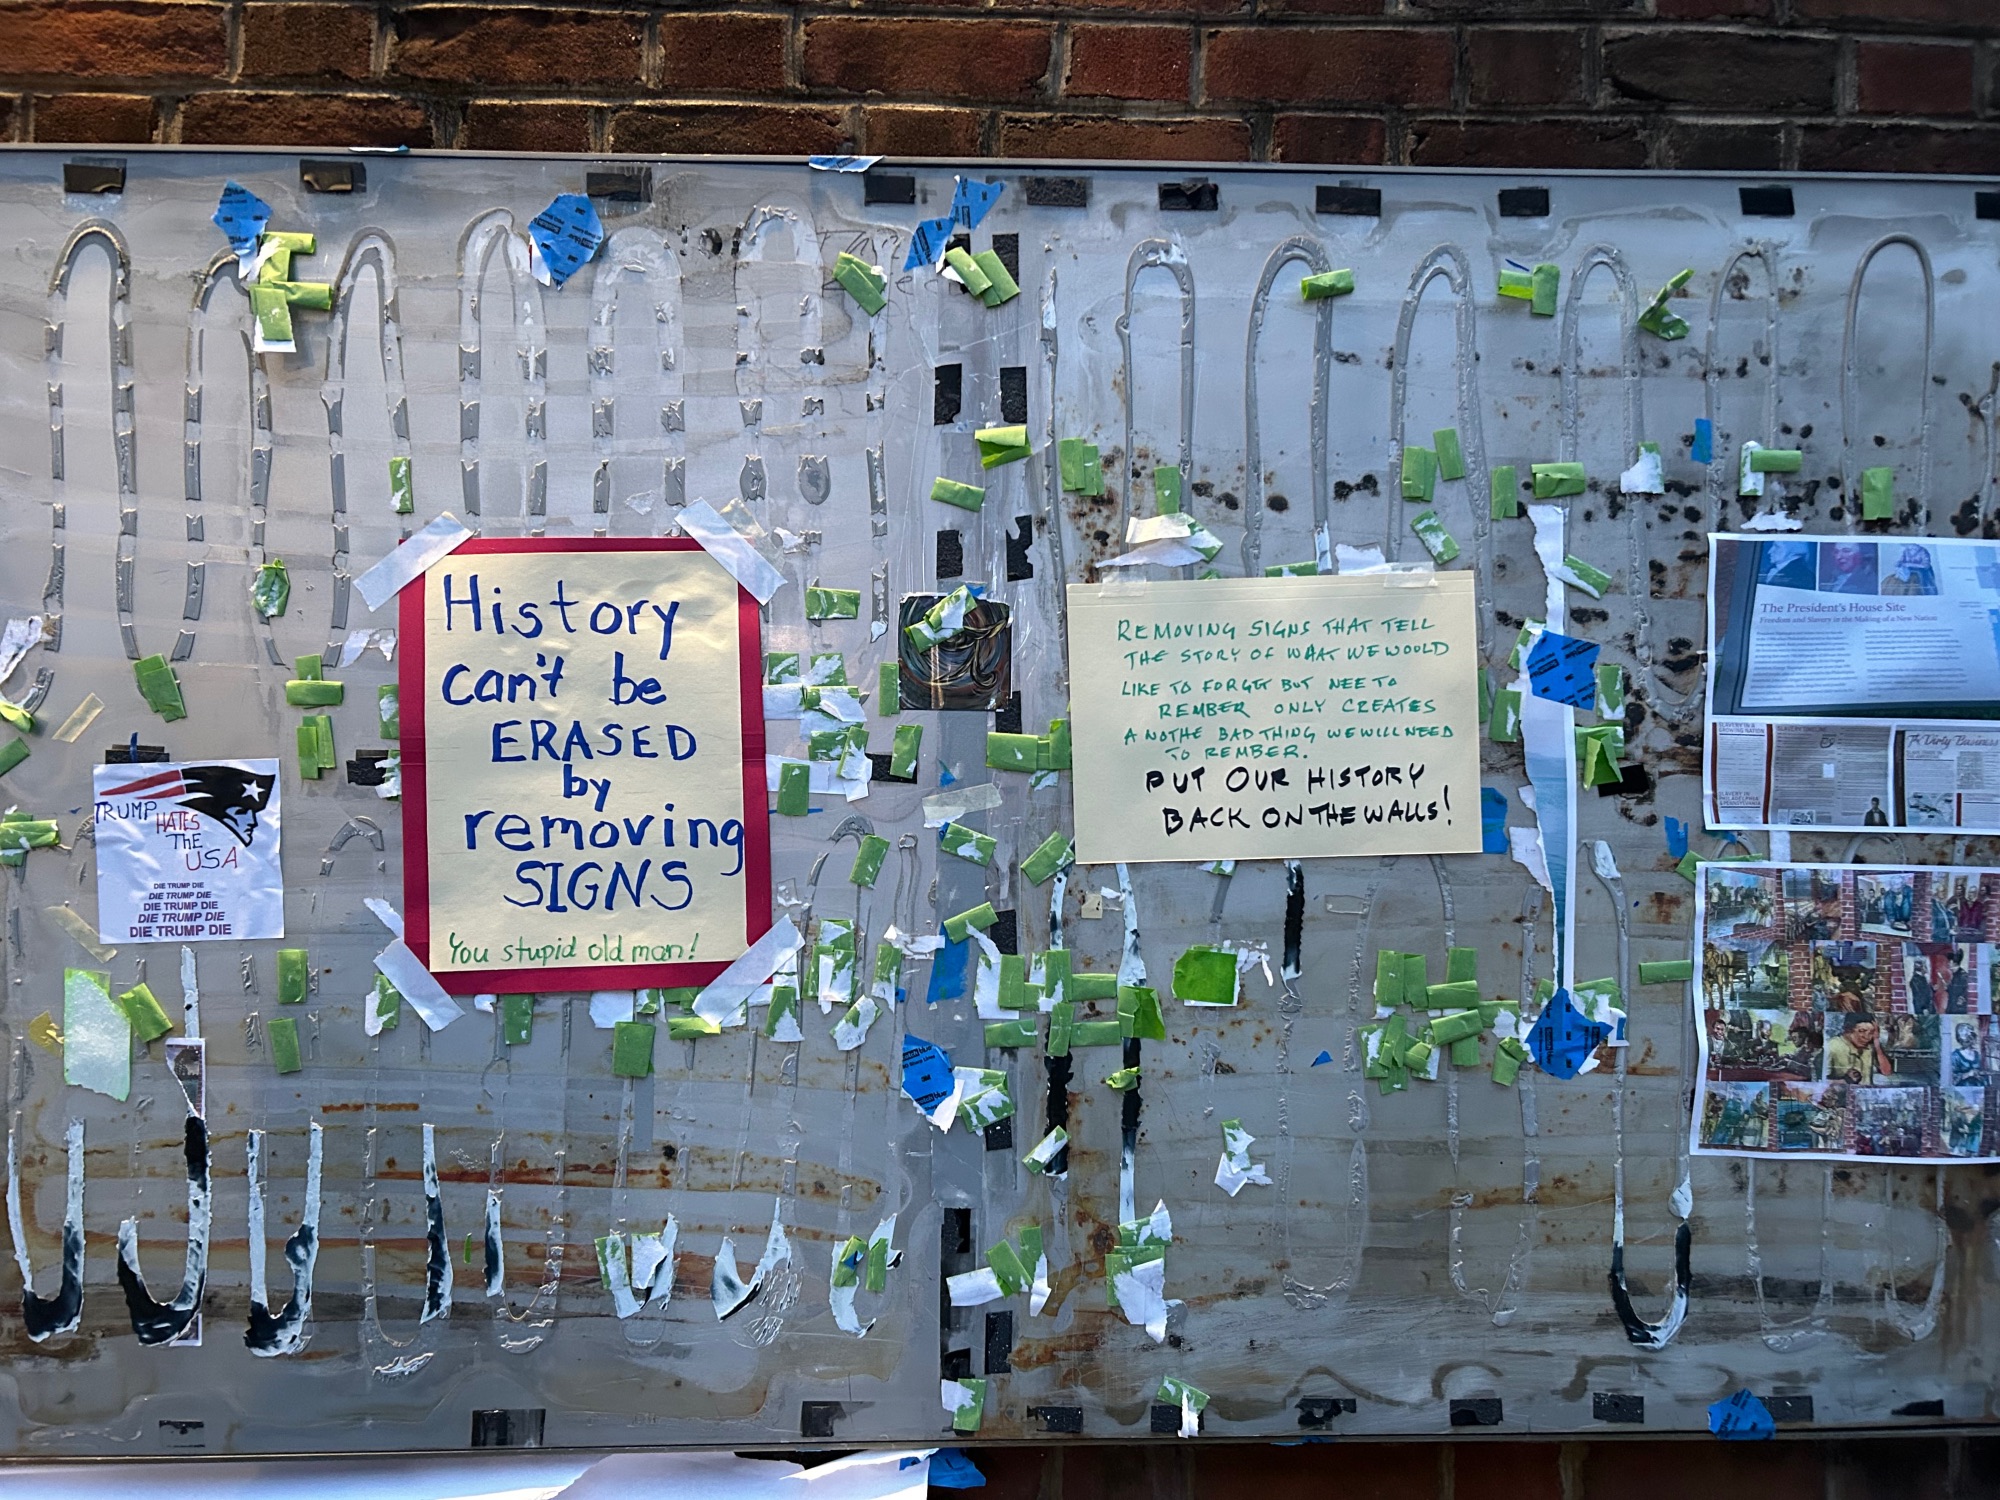 History
can't be
ERASED
by
removing
SIGNS
You stupid old man!
REMOVING SIGNS THAT TELL
THE STORY OF WHAT WE WOULD
LIKE TO FORGET BUT NEE TO
REMBER ONLY CREATES
A NOTHE BAD THING WE WILL NEED
TO REMBER.
PUT OUR HISTORY
BACK ON THE WALLS!
TRUMP
HATES
THE
USA
DIE TRUMP DIE
DIE TRUMP DIE
DIE TRUMP DIE
DIE TRUMP DIE
DIE TRUMP DIE
The President's House Site
Freedom and Slavery in the Making of a New Nation
SLAVERY IN A
GROWING NATION
A Dirty Business
SLAVERY IN
PHILADELPHIA
& PENNSYLVANIA